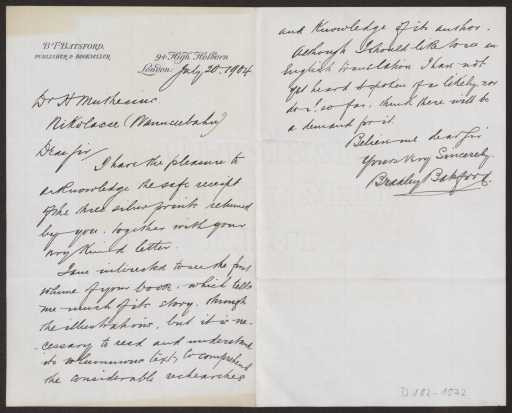 B. T. BATSFORD,
PUBLISHER & BOOKSELLER
94 High Holborn
London: July 20. 1904
Dr H Muthesius
Nikolassee (Wannseebahn)
Dear Sir
I have the pleasure to
acknowledge the safe receipt
of the three silver prints returned
by you. together with your
very kind letter.
I am interested to see the first
volume of your book. which tells
me much of its story. through
the illustrations, but it is ne-
-cessary to read and understand
its voluminous text to comprehend
the considerable researches
and Knowledge of its author.
Although I should like to see an
English translation I have not
yet heard it spoken of as likely nor
do I so far. think there will be
a demand for it.
Believe me dear Sir
Yours Very Sincerely
Bradley Batsford.
D 102-1572